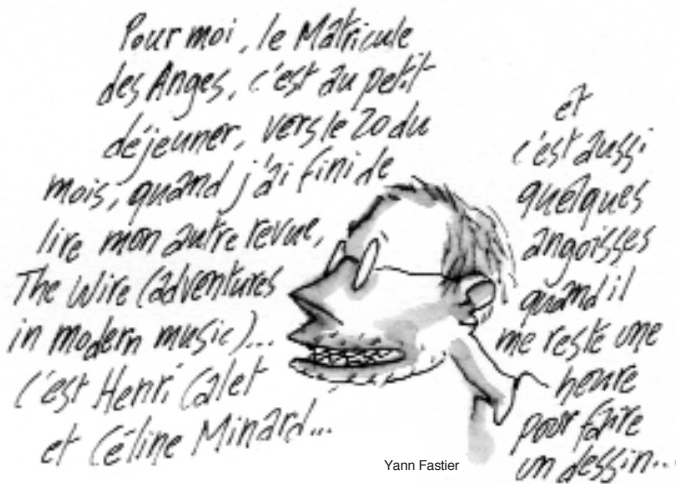 Pour moi, le Matricule
des Anges, c'est au petit
déjeuner, vers le 20 du
mois, quand j'ai fini de
lire mon autre revue,
The Wire (adventures
in modern music)...
c'est Henri Calet
et Céline Minard...
et
c'est aussi
quelques
angoisses
quand il
me reste une
heure
pour faire
un dessin...
Yann Fastier